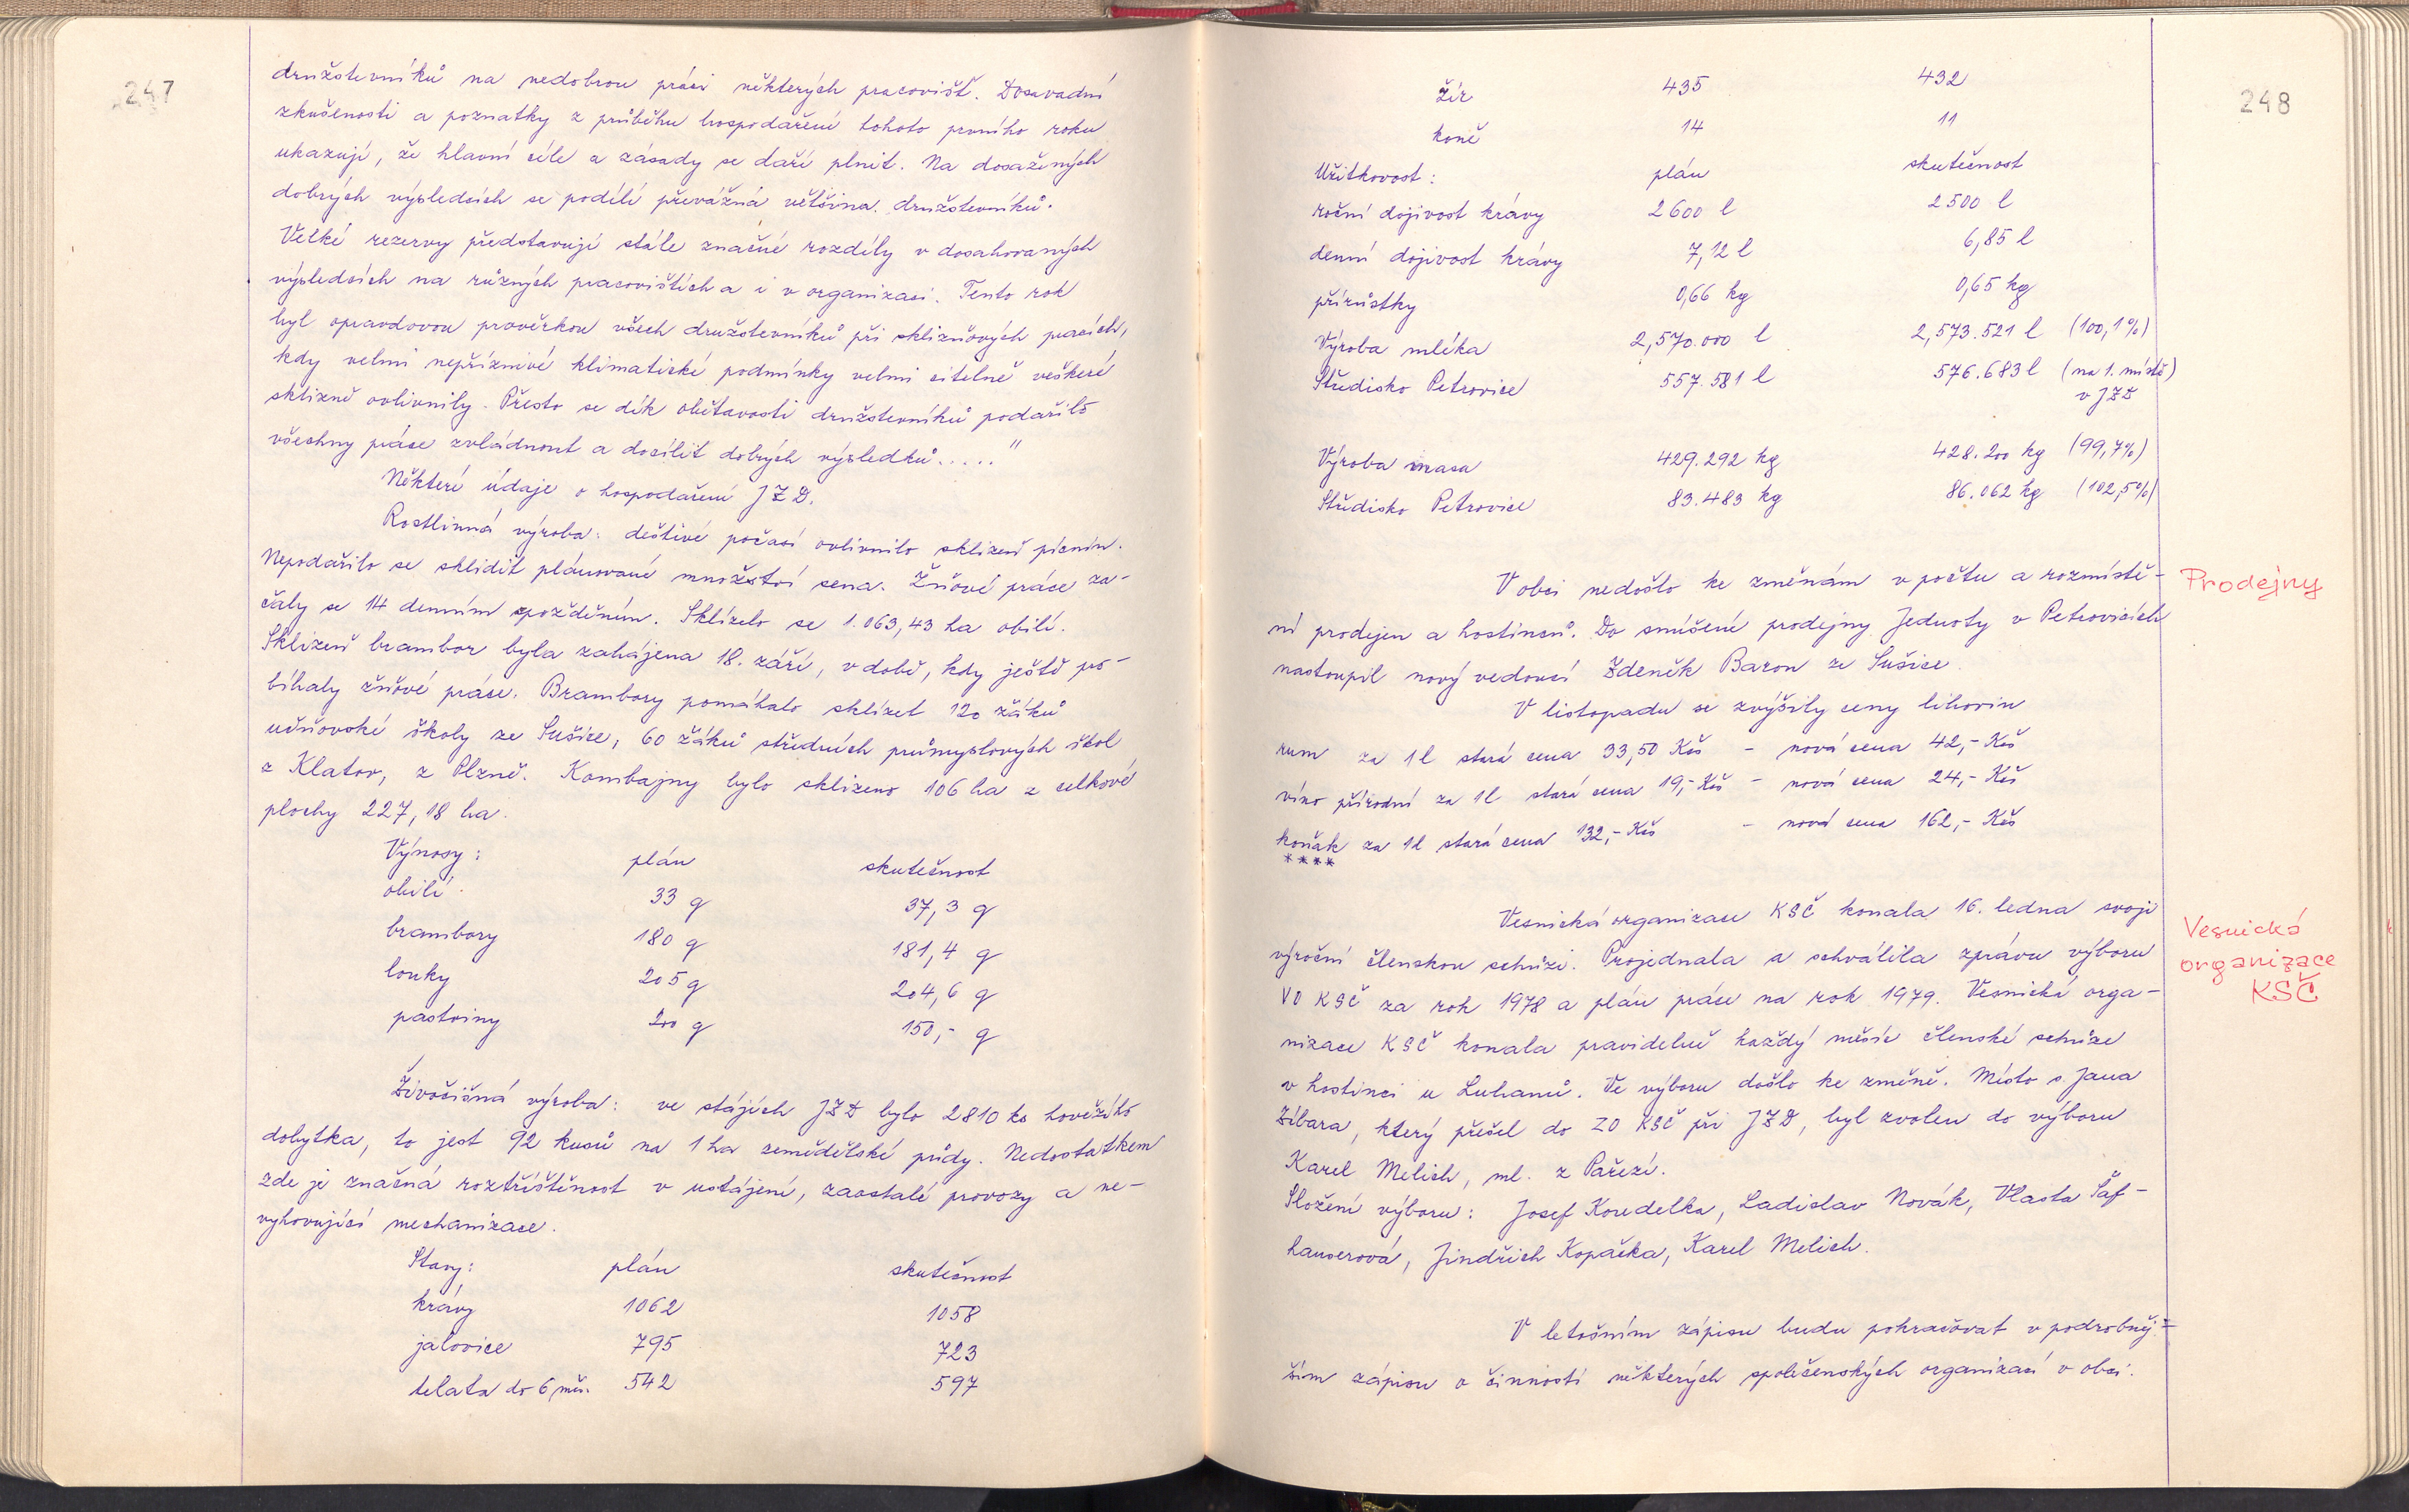 247
družstevníků na nedobrou práci některých pracovišť. Dosavadní
zkušenosti a poznatky z průběhu hospodaření tohoto prvního roku
ukazují, že hlavní cíle a zásady se daří plnit. Na dosažených
dobrých výsledcích se podílí převážná většina družstevníků.
Velké rezervy představují stále značné rozdíly v dosahovaných
výsledcích na různých pracovištích a i v organizaci. Tento rok
byl opravdovou prověrkou všech družstevníků při sklizňových pracích,
kdy velmi nepříznivé klimatické podmínky velmi citelně veškeré
sklizně ovlivnily. Přesto se dík obětavosti družstevníků podařilo
všechny práce zvládnout a docílit dobrých výsledků....."
Některé údaje o hospodaření JZD.
Rostlinná výroba: deštivé počasí ovlivnilo sklizeň pícnin.
Nepodařilo se sklidit plánované množství sena. Žňové práce za-
čaly se 14 denním zpožděním. Sklízelo se 1.063,43 ha obilí.
Sklizeň brambor byla zahájena 18. září, v době, kdy ještě pro-
bíhaly žňové práce. Brambory pomáhalo sklízet 120 žáků
učňovské školy ze Sušice, 60 žáků středních průmyslových škol
z Klatov, z Plzně. Kombajny bylo sklizeno 106 ha z celkové
plochy 227,18 ha.
Výnosy: plán skutečnost
obilí 33 q 37,3 q
brambory 180 q 181,4 q
louky 205 q 204,6 q
pastviny 200 q 150,- q
Živočišná výroba: ve stájích JZD bylo 2810 ks hovězího
dobytka, to jest 92 kusů na 1 ha zemědělské půdy. Nedostatkem
zde je značná roztříštěnost v ustájení, zaostalé provozy a ne-
vyhovující mechanizace.
Stavy: plán skutečnost
krávy 1062 1058
jalovice 795 723
telata do 6 měs. 542 597
248
žír 435 432
koně 14 11
Užitkovost: plán skutečnost
roční dojivost krávy 2600 l 2500 l
denní dojivost krávy 7,12 l 6,85 l
přírůstky 0,66 kg 0,65 kg
Výroba mléka 2,570.000 l 2,573.521 l (100,1%)
Středisko Petrovice 557.581 l 576.683 l (na 1. místě)
v JZD
Výroba masa 429.292 kg 428.200 kg (99,7%)
Středisko Petrovice 83.483 kg 86.062 kg (102,5%)
Prodejny
V obci nedošlo ke změnám v počtu a rozmístě-
ní prodejen a hostinců. Do smíšené prodejny Jednoty v Petrovicích
nastoupil nový vedoucí Zdeněk Baron ze Sušice.
V listopadu se zvýšily ceny lihovin
rum za 1 l stará cena 33,50 Kčs - nová cena 42,- Kčs
víno přírodní za 1 l stará cena 19,- Kčs - nová cena 24,- Kčs
koňak za 1 l stará cena 132,- Kčs - nová cena 162,- Kčs
****
Vesnická
organizace
KSČ
Vesnická organizace KSČ konala 16. ledna svoji
výroční členskou schůzi. Projednala a schválila zprávu výboru
VO KSČ za rok 1978 a plán práce na rok 1979. Vesnická orga-
nizace KSČ konala pravidelně každý měsíc členské schůze
v hostinci u Luhanů. Ve výboru došlo ke změně. Místo s Jana
Zíbara, který přešel do ZO KSČ při JZD, byl zvolen do výboru
Karel Melich, ml. z Pařezí.
Složení výboru: Josef Koudelka, Ladislav Novák, Vlasta Šaf-
hauserová, Jindřich Kopačka, Karel Melich.
V letošním zápisu budu pokračovat v podrobněj-
ším zápisu o činnosti některých společenských organizací v obci.